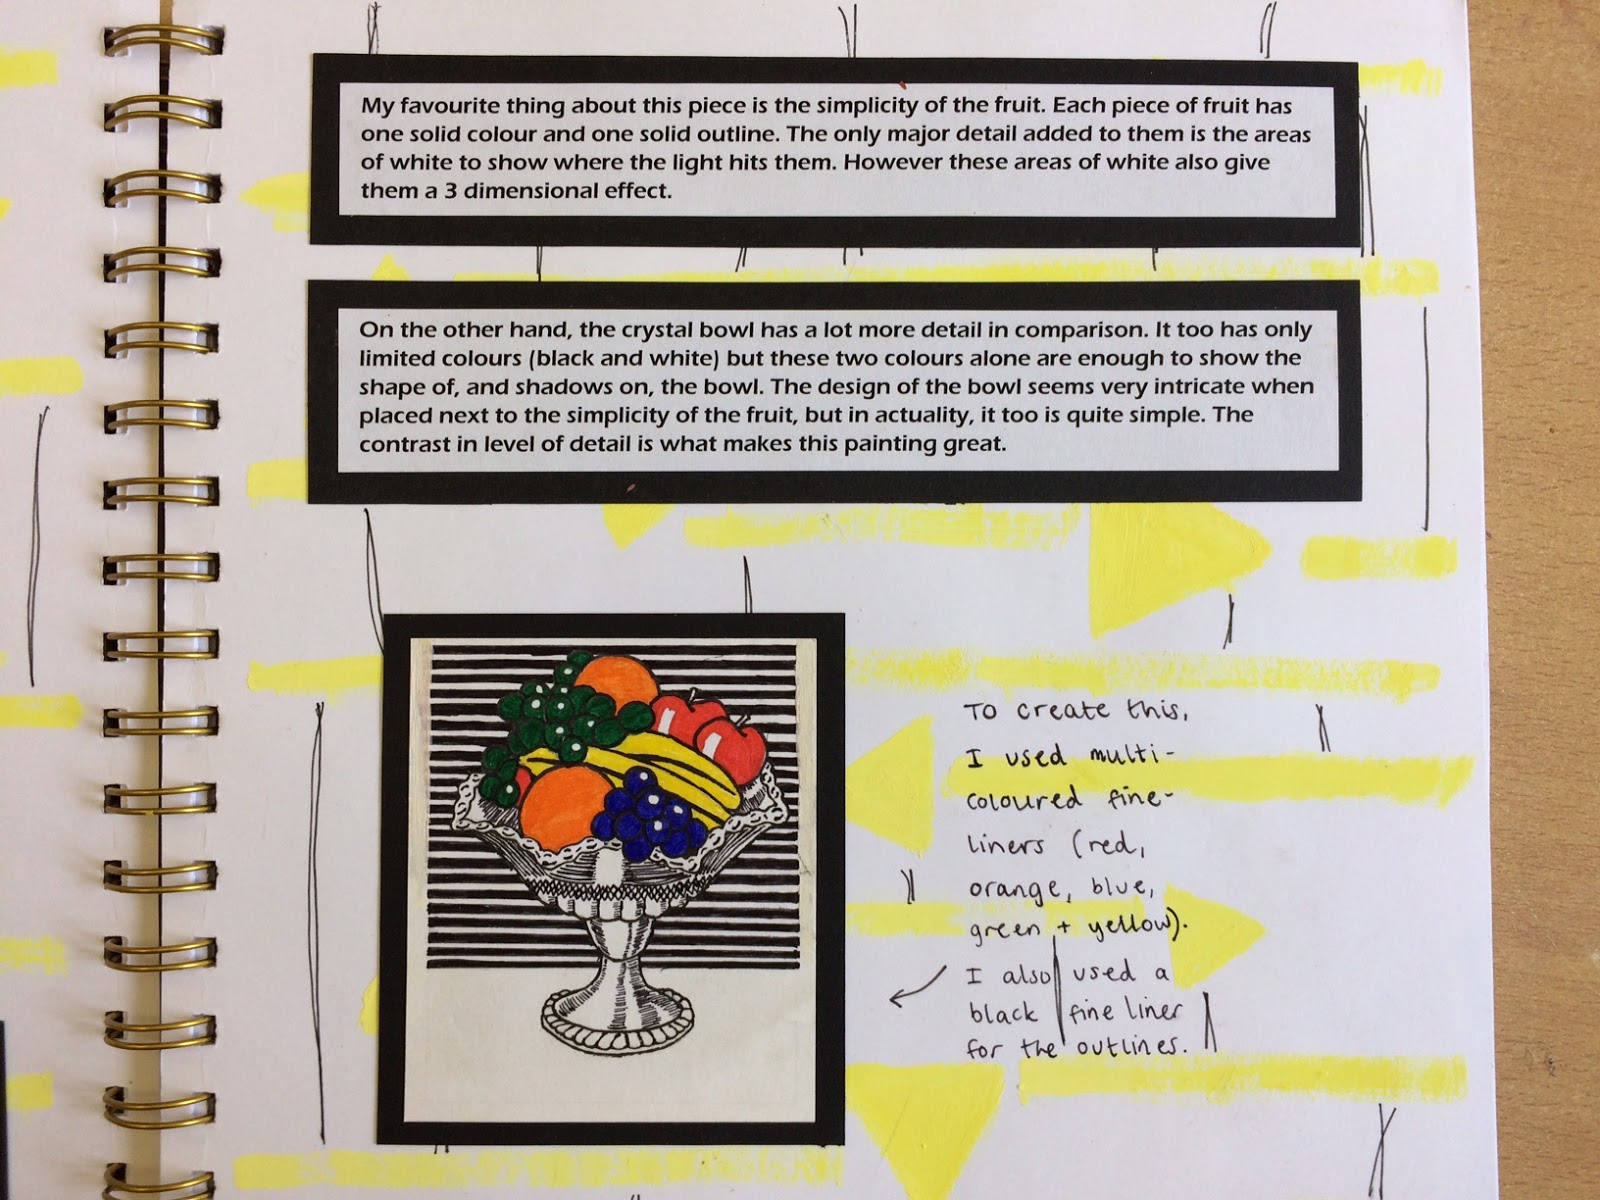 My favourite thing about this piece is the simplicity of the fruit. Each piece of fruit has
one solid colour and one solid outline. The only major detail added to them is the areas
of white to show where the light hits them. However these areas of white also give
them a 3 dimensional effect.
On the other hand, the crystal bowl has a lot more detail in comparison. It too has only
limited colours (black and white) but these two colours alone are enough to show the
shape of, and shadows on, the bowl. The design of the bowl seems very intricate when
placed next to the simplicity of the fruit, but in actuality, it too is quite simple. The
contrast in level of detail is what makes this painting great.
To create this,
I used multi-
coloured fine-
liners (red,
orange, blue,
green + yellow).
I also used a
black fine liner
for the outlines.